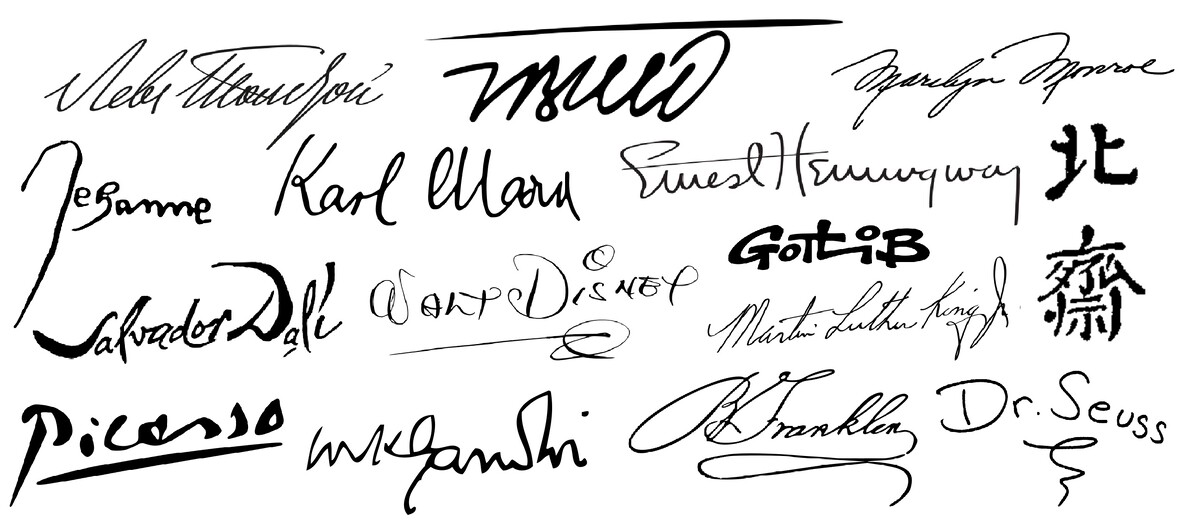 Marilyn Monroe
Karl Marx
Ernest Hemingway
北齋
GOTLIB
Salvador Dalí
WALT DISNEY
Martin Luther King Jr.
Picasso
mkgandhi
B Franklin
Dr. Seuss